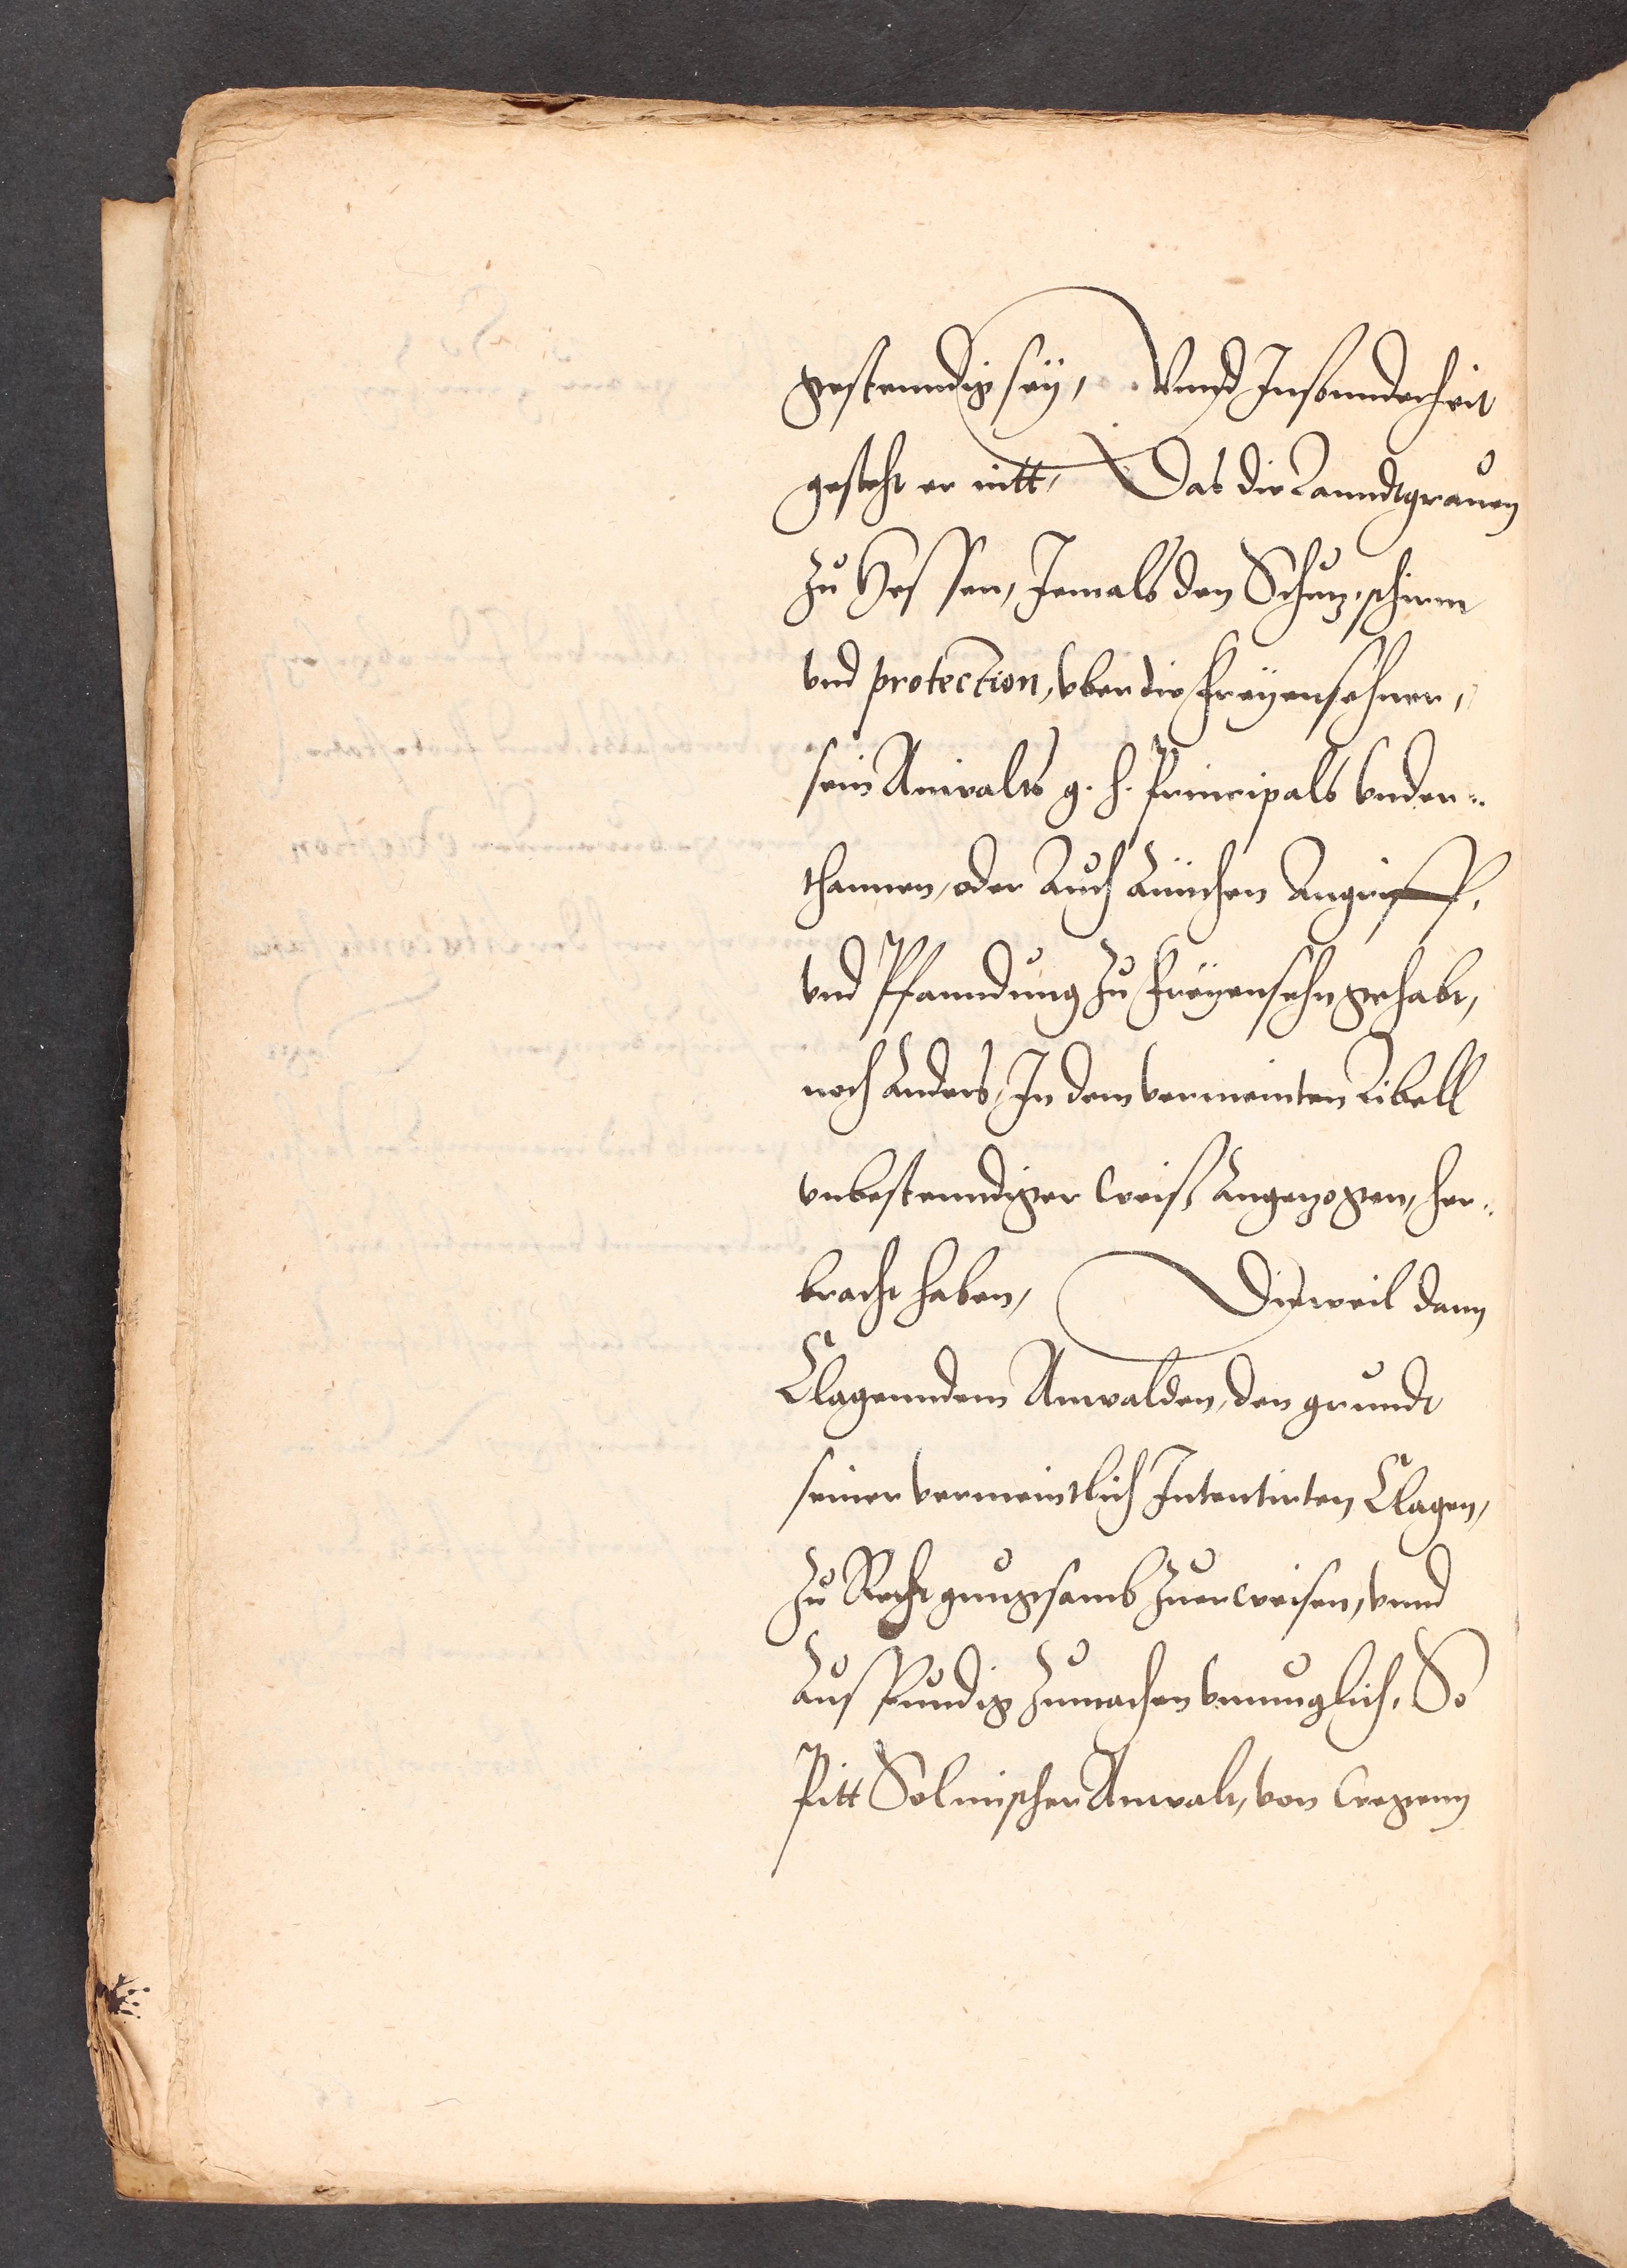 gestenndig seÿ, Vnnd Insonnderheit
gesteht er nitt, Das die Lanndtgrauen
zu Hessen, Jemals den Schutz, schirm
vnd protection, vber die Freÿensehner,
sein Anwalts g. h. Principals vnder-
thannen, oder Auch Einichen Angriff,
vnd Pfanndung zu Freÿensehn gehabt,
noch Anders, In dem vermeinten Libell
vnbestenndiger weiß Angezogen, her-
bracht haben, Dieweil dann
Clagenndem Anwalden, den grundt
seiner vermeintlich Intentirten Clagen,
zu Recht gnugsamb zuerweisen, vnnd
Ausfundig zumachen vnmuglich, So
Pitt Solmischer Anwalt, von wegenn